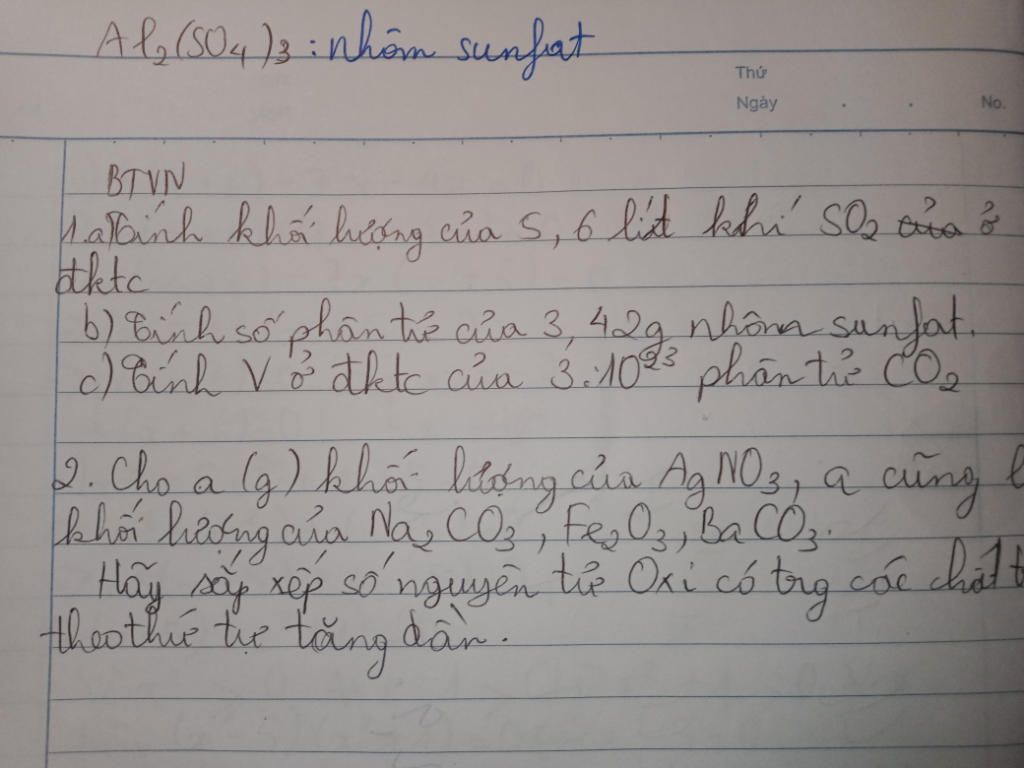 Al2(SO4)3: nhôm sunfat
Thứ
Ngày . . No.
BTVN
1.a) Tính khối lượng của 5,6 lít khí SO2 của ở
đktc
b) Tính số phân tử của 3,42g nhôm sunfat.
c) Tính V ở đktc của 3.10^23 phân tử CO2
2. Cho a (g) khối lượng của AgNO3, a cũng
khối lượng của Na2CO3, Fe2O3, BaCO3.
Hãy sắp xếp số nguyên tử Oxi có trg các chất
theo thứ tự tăng dần.